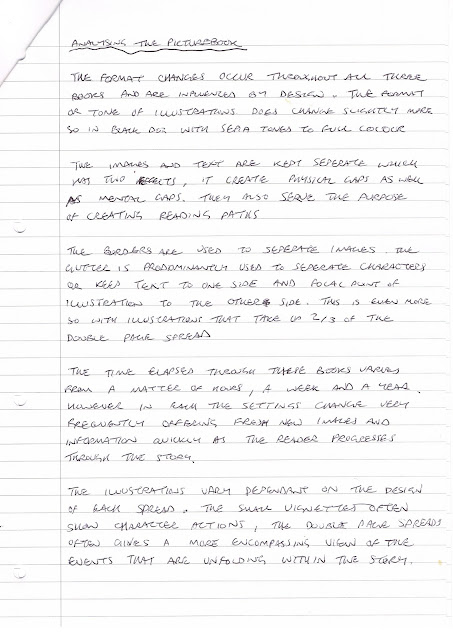 ANALYSING THE PICTUREBOOK
THE FORMAT CHANGES OCCUR THROUGHOUT ALL THREE
BOOKS AND ARE INFLUENCED BY DESIGN. THE FORMAT
OR TONE OF ILLUSTRATIONS DOES CHANGE SLIGHTLY MORE
SO IN BLACK DOG WITH SEPIA TONES TO FULL COLOUR
THE IMAGES AND TEXT ARE KEPT SEPERATE WHICH
HAS TWO EFFECTS, IT CREATE PHYSICAL GAPS AS WELL
AS MENTAL GAPS. THEY ALSO SERVE THE PURPOSE
OF CREATING READING PATHS
THE BORDERS ARE USED TO SEPERATE IMAGES. THE
GUTTER IS PREDOMINANTLY USED TO SEPERATE CHARACTERS
OR KEEP TEXT TO ONE SIDE AND FOCAL POINT OF
ILLUSTRATION TO THE OTHER SIDE. THIS IS EVEN MORE
SO WITH ILLUSTRATIONS THAT TAKE UP 2/3 OF THE
DOUBLE PAGE SPREAD
THE TIME ELAPSED THROUGH THESE BOOKS VARIES
FROM A MATTER OF HOURS, A WEEK AND A YEAR.
HOWEVER IN EACH THE SETTINGS CHANGE VERY
FREQUENTLY OFFERING FRESH NEW IMAGES AND
INFORMATION QUICKLY AS THE READER PROGRESSES
THROUGH THE STORY.
THE ILLUSTRATIONS VARY DEPENDANT ON THE DESIGN
OF EACH SPREAD. THE SMALL VIGNETTES OFTEN
SHOW CHARACTER ACTIONS, THE DOUBLE PAGE SPREADS
OFTEN GIVES A MORE ENCOMPASSING VIEW OF THE
EVENTS THAT ARE UNFOLDING WITHIN THE STORY.